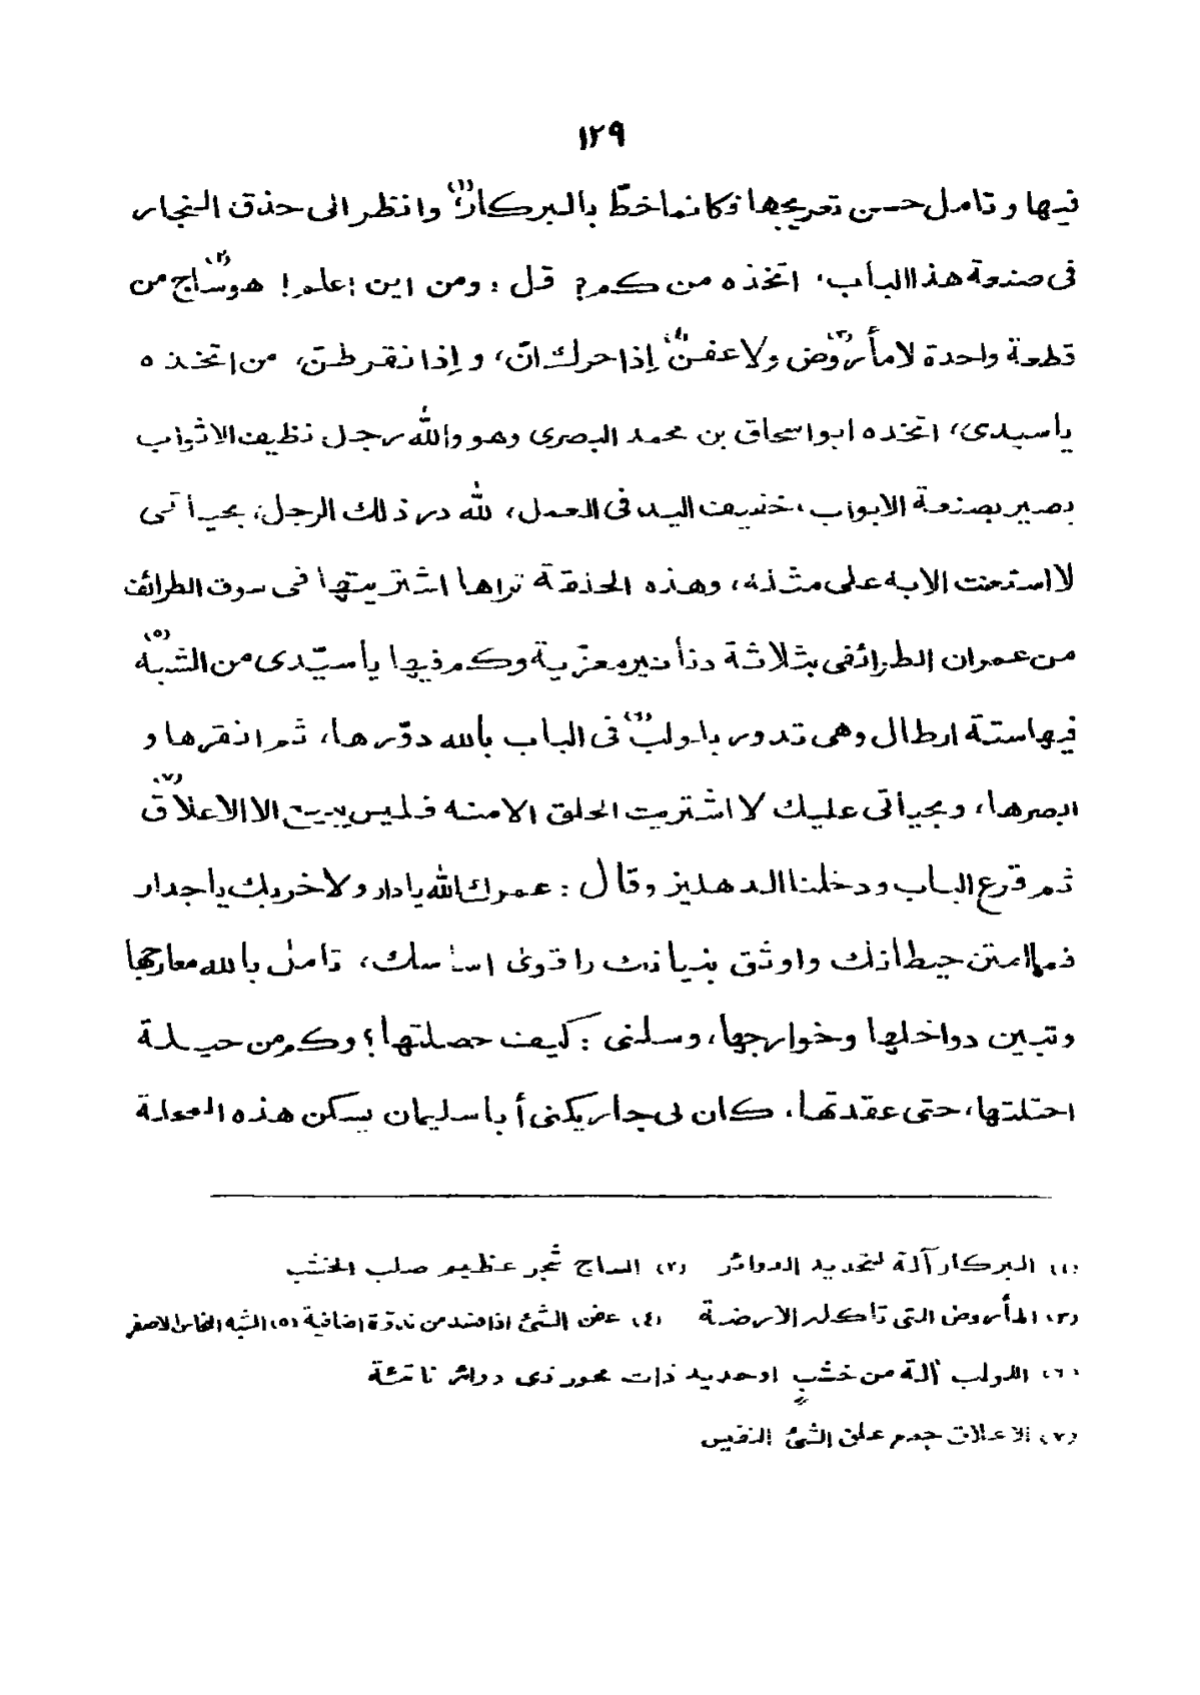 ١٢٩
فيها و تأمل حسن تعريجها فكانما خطّ بالبركار(١) وانظر الى حذق النجار
فى صنعة هذا الباب، اتخذه من كم؟ قل: ومن اين اعلم! هو ساج(٢) من
قطعة واحدة لا مأروض(٣) ولا عفن(٤) إذا حرك انّ، و إذا نقر طنّ، من اتخذه
يا سيدى، اتخذه ابو اسحاق بن محمد البصرى وهو والله رجل نظيف الاثواب
بصير بصنعة الابواب، خفيف اليد فى العمل، لله در ذلك الرجل، بحياتى
لا استعنت الا به على مثله، وهذه الحذقة تراها اشتريتها فى سوق الطرائف
من عمران الطرائفى بثلاثة دنأنير معزّية وكم فيها يأ سيّدى من الشبه(٥)
فيها ستة ارطال وهى تدور بلولب(٦) فى الباب بألله دوّرها، ثم انقرها و
ابصرها، وبحياتى عليك لا اشتريت الحلق الا منه فليس يبيع الا الاعلاق(٧)
ثم قرع الباب ودخلنا الدهليز وقال: عمرك الله يا دار ولا خربك يا جدار
فما امتن حيطانك واوثق بنيانك واقوى اساسك، تامل بالله معارجها
وتبين دواخلها وخوارجها، وسلنى: كيف حصلتها؟ وكم من حيلة
احتلتها، حتى عقدتها، كان لى جار يكنى أبا سليمان يسكن هذه المحلة
(١) البركار آلة لتحديد الدوائر (٢) الساج شجر عظيم صلب الخشب
(٣) المأروض التى تاكله الارضة (٤) عفن الشئ اذا فسد من ندوة اضافية (٥) الشبه النحاس الاصفر
(٦) اللولب آلة من خشب او حديد ذات محور ذى دوائر ناتئة
(٧) الاعلاق جمع علق الشئ النفيس